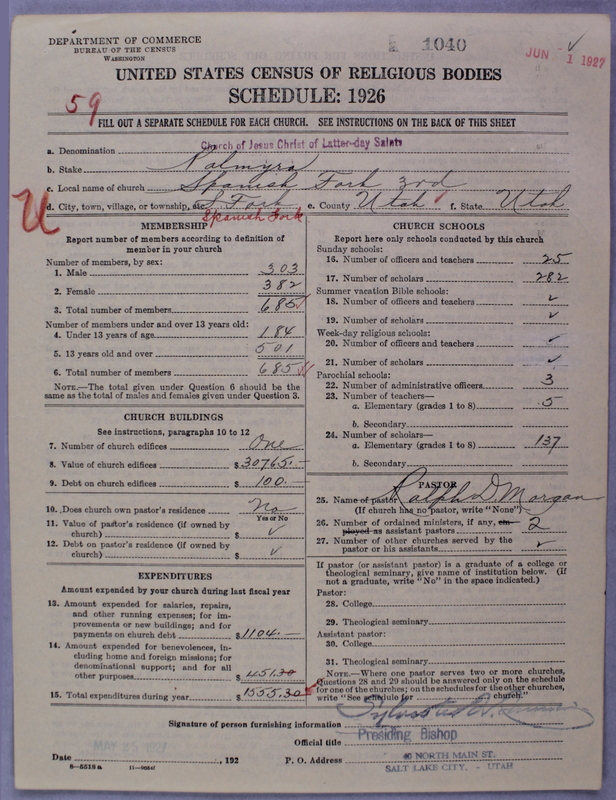 DEPARTMENT OF COMMERCE
BUREAU OF THE CENSUS
WASHINGTON
1040
JUN 1 1927
UNITED STATES CENSUS OF RELIGIOUS BODIES
SCHEDULE: 1926
59
FILL OUT A SEPARATE SCHEDULE FOR EACH CHURCH. SEE INSTRUCTIONS ON THE BACK OF THIS SHEET
a. Denomination Church of Jesus Christ of Latter-day Saints
b. Stake Palmyra
c. Local name of church Spanish Fork 3rd
d. City, town, village, or township, etc. S. Fork e. County Utah f. State Utah
Spanish Fork
U
MEMBERSHIP
Report number of members according to definition of
member in your church
Number of members, by sex:
1. Male 303
2. Female 382
3. Total number of members 685
Number of members under and over 13 years old:
4. Under 13 years of age 184
5. 13 years old and over 501
6. Total number of members 685
NOTE.—The total given under Question 6 should be
same as the total of males and females given under Question 3.
CHURCH BUILDINGS
See instructions, paragraphs 10 to 12
7. Number of church edifices One
8. Value of church edifices $30765.—
9. Debt on church edifices $100.—
10. Does church own pastor's residence No
Yes or No
11. Value of pastor's residence (if owned by
church) $ ✓
12. Debt on pastor's residence (if owned by
church) $ ✓
EXPENDITURES
Amount expended by your church during last fiscal year
13. Amount expended for salaries, repairs,
and other running expenses; for im-
provements or new buildings; and for
payments on church debt $1104.—
14. Amount expended for benevolences, in-
cluding home and foreign missions; for
denominational support; and for all
other purposes $451.30
15. Total expenditures during year $1555.30
CHURCH SCHOOLS
Report here only schools conducted by this church
Sunday schools:
16. Number of officers and teachers 25
17. Number of scholars 282
Summer vacation Bible schools:
18. Number of officers and teachers ✓
19. Number of scholars ✓
Week-day religious schools:
20. Number of officers and teachers ✓
21. Number of scholars ✓
Parochial schools:
22. Number of administrative officers 3
23. Number of teachers—
a. Elementary (grades 1 to 8) 5
b. Secondary
24. Number of scholars—
a. Elementary (grades 1 to 8) 137
b. Secondary
PASTOR
25. Name of pastor Ralph D. Morgan
(If church has no pastor, write "None")
26. Number of ordained ministers, if any, em-
ployed as assistant pastors 2
27. Number of other churches served by the
pastor or his assistants ✓
If pastor (or assistant pastor) is a graduate of a college or
theological seminary, give name of institution below. (If
not a graduate, write "No" in the space indicated.)
Pastor:
28. College
29. Theological seminary
Assistant pastor:
30. College
31. Theological seminary
NOTE.—Where one pastor serves two or more churches,
Questions 28 and 29 should be answered only on the schedule
for one of the churches; on the schedules for the other churches,
write "See schedule for church."
Signature of person furnishing information
Official title Presiding Bishop
Date MAY 25 1927, 192 P. O. Address 40 NORTH MAIN ST.
SALT LAKE CITY. - UTAH